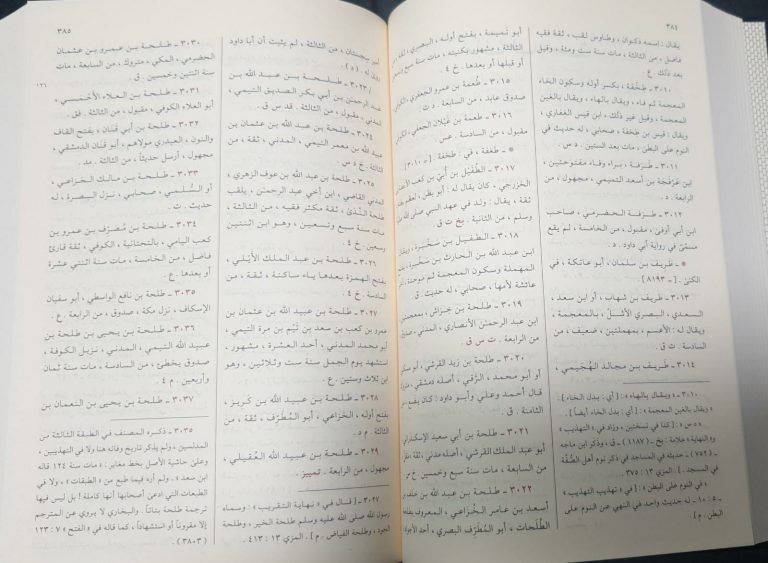 ٣٨٤
يقال : اسمه ذكوان ، وطاوس لقب ، ثقة فقيه
فاضل ، من الثالثة ، مات سنة ست ومئة ، وقيل
بعد ذلك . ع .
٣٠١٠ ـ طخفة ، بكسر أوله وسكون الخاء
المعجمة ثم فاء ، ويقال بالهاء ، ويقال بالغين
المعجمة ، وقيل غير ذلك ، ابن قيس الغفاري ،
ويقال : قيس بن طخفة ، صحابي ، له حديث في
النوم على البطن ، مات بعد الستين . د س ق .
٣٠١١ ـ طرفة ، براء وفاء مفتوحتين ،
ابن عرفجة بن أسعد التميمي ، مجهول ، من
الرابعة . د .
٣٠١٢ ـ طرفة الحضرمي ، صاحب
ابن أبي أوفى ، مقبول ، من الخامسة ، لم يقع
مسمى في رواية أبي داود . د .
* ـ طريف بن سلمان ، أبو عاتكة ، في
الكنى . [ ـ ٨١٩٣ ] .
٣٠١٣ ـ طريف بن شهاب ، أو ابن سعد ،
السعدي ، البصري الأشل ، بالمعجمة ،
ويقال له : الأعسم ، بمهملتين ، ضعيف ، من
السادسة . ت ق .
٣٠١٤ ـ طريف بن مجالد الهجيمي ،
٣٠١٠ ـ « ويقال بالهاء » : [ أي : بدل الخاء ] .
« ويقال بالغين المعجمة » : [ أي : بدل الخاء أيضا ] .
« د س » : [ كذا في نسختين ، وزاد في « التهذيب »
و« النهاية » علامة : بخ ـ ق ، وذكر ابن ماجه
( ٧٥٢ ) ـ حديثه في المساجد في ذكر نوم أهل الصفة
في المسجد . ] . المزي ١٣ : ٣٧٥
« في النوم على البطن » : [ في « تهذيب التهذيب »
٥ : ١٠ ـ له حديث واحد في النهي عن النوم على
البطن . م ] .
أبو تميمة ، بفتح أوله ، البصري ، ثقة ، من
الثالثة ، مشهور بكنيته ، مات سنة
أو قبلها أو بعدها . خ ٤ .
٣٠١٥ ـ طعمة بن عمرو الجعفري ،
صدوق عابد ، من السابعة . د ت .
٣٠١٦ ـ طعمة بن غيلان الجعفي ،
مقبول ، من السادسة . عس .
* ـ طغفة ، في : طخفة . [ ـ ٣٠١٠ ] .
٣٠١٧ ـ الطفيل بن أبي بن كعب الأنصاري
الخزرجي ، كان يقال له : أبو بطن ، لعظم بطنه ،
ثقة ، يقال : ولد في عهد النبي صلى الله عليه
وسلم ، من الثانية . بخ ت ق .
٣٠١٨ ـ الطفيل بن سخبرة ، ويقال
ابن عبد الله بن الحارث بن سخبرة ، بفتح
المهملة وسكون المعجمة ثم موحدة ،
عائشة لأمها ، صحابي ، له حديث . ق .
٣٠١٩ ـ طلحة بن خراش ، بمعجمتين ،
ابن عبد الرحمن الأنصاري ، المدني ، صدوق ،
من الرابعة . ت س ق .
٣٠٢٠ ـ طلحة بن زيد القرشي ، أبو مسكين
أو أبو محمد ، الرقي ، أصله دمشقي ،
قال أحمد وعلي وأبو داود : كان يضع ، من
الثامنة . ق .
٣٠٢١ ـ طلحة بن أبي سعيد الإسكندراني
أبو عبد الملك القرشي ، أصله مدني ، ثقة
من السابعة ، مات سنة سبع وخمسين . خ س .
٣٠٢٢ ـ طلحة بن عبد الله بن خلف بن
أسعد بن عامر الخزاعي ، المعروف بطلحة
الطلحات ، أبو المطرف البصري ، أحد الأجواد ،
٣٨٥
أمير سجستان ، من الثالثة ، لم يثبت أن أبا داود
٣٠٢٣ ـ طلحة بن عبد الله بن
عبد الرحمن بن أبي بكر الصديق التيمي ،
المدني ، مقبول ، من الثالثة . قد س ق .
٣٠٢٤ ـ طلحة بن عبد الله بن عثمان بن
عبيد الله بن معمر التيمي ، المدني ، ثقة ، من
الثالثة . خ د س .
٣٠٢٥ ـ طلحة بن عبد الله بن عوف الزهري ،
المدني القاضي ، ابن أخي عبد الرحمن ، يلقب
طلحة الندى ، ثقة مكثر فقيه ، من الثالثة ،
مات سنة سبع وتسعين ، وهو ابن اثنتين
وسبعين . خ ٤ .
٣٠٢٦ ـ طلحة بن عبد الملك الأيلي ،
بفتح الهمزة بعدها ياء ساكنة ، ثقة ، من
السادسة . خ ٤ .
٣٠٢٧ ـ طلحة بن عبيد الله بن عثمان بن
عمرو بن كعب بن سعد بن تيم بن مرة التيمي ،
أبو محمد المدني ، أحد العشرة ، مشهور ،
استشهد يوم الجمل سنة ست وثلاثين ، وهو
ابن ثلاث وستين . ع .
٣٠٢٨ ـ طلحة بن عبيد الله بن كريز ،
بفتح أوله ، الخزاعي ، أبو المطرف ، ثقة ، من
الثالثة . م د .
٣٠٢٩ ـ طلحة بن عبيد الله العقيلي ،
مجهول ، من الرابعة . تمييز .
٣٠٢٧ ـ [ قال في « نهاية التقريب » : وسماه
رسول الله صلى الله عليه وسلم طلحة الخير ، وطلحة
الجود ، وطلحة الفياض . م ] . المزي ١٣ : ٤١٣ .
٣٠٣٠ ـ طلحة بن عمرو بن عثمان
الحضرمي ، المكي ، متروك ، من السابعة ، مات
سنة اثنتين وخمسين . ق .
١٢٦
٣٠٣١ ـ طلحة بن العلاء الأحمسي ،
أبو العلاء الكوفي ، مقبول ، من الثالثة . فق .
٣٠٣٢ ـ طلحة بن أبي قنان ، بفتح القاف
والنون ، العبدري مولاهم ، أبو قنان الدمشقي ،
مجهول ، أرسل حديثا ، من الثالثة . مد .
٣٠٣٣ ـ طلحة بن مالك الخزاعي ،
أو السلمي ، صحابي ، نزل البصرة ، له
حديث . ت .
٣٠٣٤ ـ طلحة بن مصرف بن عمرو بن
كعب اليامي ، بالتحتانية ، الكوفي ، ثقة قارئ
فاضل ، من الخامسة ، مات سنة اثنتي عشرة
أو بعدها . ع .
٣٠٣٥ ـ طلحة بن نافع الواسطي ، أبو سفيان
الإسكاف ، نزل مكة ، صدوق ، من الرابعة . ع .
٣٠٣٦ ـ طلحة بن يحيى بن طلحة بن
عبيد الله التيمي ، المدني ، نزيل الكوفة ،
صدوق يخطئ ، من السادسة ، مات سنة ثمان
وأربعين . م ٤ .
٣٠٣٧ ـ طلحة بن يحيى بن النعمان بن
٣٠٣٥ ـ ذكره المصنف في الطبقة الثالثة من
المدلسين ، ولم يذكر تاريخ وفاته هنا ولا في التهذيبين ،
وعلى حاشية الأصل بخط مغاير : « مات سنة ١٢٤ قاله
ابن سعد » . ولم أره فيما طبع من « الطبقات » ، ولا في
الطبعات التي ادعى أصحابها أنها كاملة ! بل ليس فيها
ترجمة طلحة بتاتا . والبخاري لا يروي عن المترجم
إلا مقرونا أو استشهادا ، كما قاله في « الفتح » ٧ : ١٢٣
( ٣٨٠٣ ) .